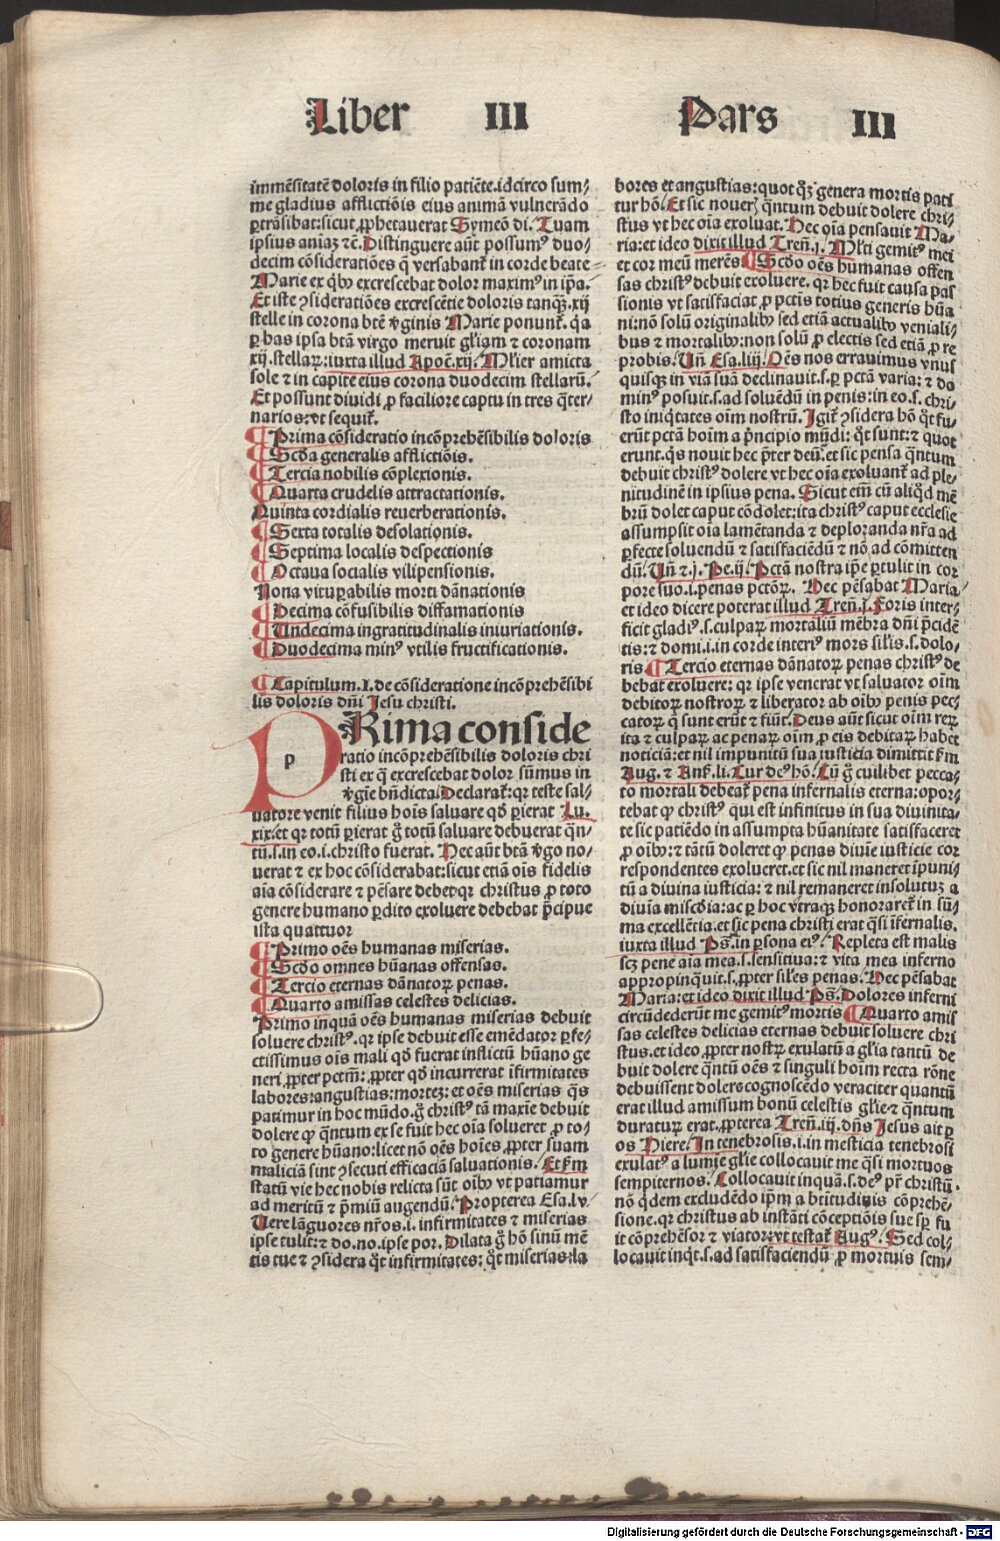 Liber III Pars III
immēsitatē doloris in filio patiēte.idcirco sum/
me gladius afflictiōis eius animā vulnerādo
ꝑtrāsibat:sicut ꝓphetauerat Symeō di. Tuam
ipsius aniaꝫ ⁊c̄. Distinguere aūt possumꝰ duo/
decim cōsideratiōes q̄ versabant̄ in corde beate
Marie ex qͥbꝰ excrescebat dolor maximꝰ in ip̄a.
Et iste ꝯsideratiōes excrescētie doloris tanqꝫ.xij
stelle in corona btē v̄ginis Marie ponunt̄. q̄a
ꝑ has ipsa btā virgo meruit gl̄iam ⁊ coronam
xij.stellaꝝ:iuxta illud Apoc̄.xij. Ml̄ier amicta
sole ⁊ in capite eius corona duodecim stellarū.
Et possunt diuidi ꝓ faciliore captu in tres q̄ter/
narios:vt sequit̄.
¶ Prima cōsideratio incōprehēsibilis doloris
¶ Scd̄a generalis afflictiōis.
¶ Tercia nobilis cōplexionis.
¶ Quarta crudelis attractationis.
Quinta cordialis reuerberationis.
¶ Sexta totalis desolationis.
¶ Septima localis despectionis
¶ Octaua socialis vilipensionis.
Nona vituꝑabilis morti dānationis
¶ Decima cōfusibilis diffamationis
¶ Undecima ingratitudinalis iniuriationis.
¶ Duodecima minꝰ vtilis fructificationis.
¶ Capitulum.I.de cōsideratione incōprehēsibi
lis doloris dn̄i Jesu christi.
p
PRima conside
ratio incōprehēsibilis doloris chri
sti ex q̄ excrescebat dolor sūmus in
v̄gīe bn̄dicta. Declarat̄: qꝛ teste sal/
uatore venit filius hoīs saluare qd̄ ꝑierat Lu.
xix.et qꝛ totū ꝑierat g̊ totū saluare debuerat q̄n/
tū.s.in eo.i.christo fuerat. Hec aūt btā v̄go no/
uerat ⁊ ex hoc cōsiderabat:sicut etiā oīs fidelis
aīa cōsiderare ⁊ pēsare debet:qꝛ christus ꝓ toto
genere humano ꝑdito exoluere debebat p̄cipue
ista quattuor
¶ Primo oēs humanas miserias.
¶ Scd̄o omnes hūanas offensas.
¶ Tercio eternas dānatoꝝ penas.
¶ Quarto amissas celestes delicias.
Primo inquā oēs humanas miserias debuit
soluere christꝰ.qꝛ ipse debuit esse emēdator ꝑfe/
ctissimus oīs mali qd̄ fuerat inflictū hūano ge
neri ꝓpter pctm̄: ꝓpter qd̄ incurrerat īfirmitates
labores:angustias:morteꝫ:et oēs miserias q̄s
patimur in hoc mūdo.g̊ christꝰ tā maxīe debuit
dolere ꝙ q̄ntum ex se fuit hec oīa solueret ꝓ to/
to genere hūano:licet nō oēs hoīes ꝓpter suam
maliciā sint ꝯsecuti efficaciā saluationis. Et s̄m
statū vie hec nobis relicta sūt oībꝰ vt patiamur
ad meritū ⁊ p̄miū augendū. Propterea Esa.lv
Uere lāguores nr̄os.i.infirmitates ⁊ miserias
ipse tulit:⁊ do.no.ipse por. Dilata g̊ hō sinū mē
tis tue ⁊ ꝯsidera q̄t infirmitates: q̄t miserias:la
bores et angustias:quot qꝫ genera mortis pati
tur hō. Et sic nouerꝫ q̄ntum debuit dolere chri/
stus vt hec oīa exoluat. Hec oīa pensauit Ma/
ria:et ideo dixit illud Tren̄.j. Ml̄ti gemitꝰ mei
et cor meū merēs ¶ Scd̄o oēs humanas offen
sas christꝰ debuit exoluere. qꝛ hec fuit causa pas
sionis vt satisfaciat ꝓ pctīs totius generis hūa
ni:nō solū originalibꝰ sed etiā actualibꝰ veniali/
bus ⁊ mortalibꝰ:non solū ꝓ electis sed etiā ꝓ re
probis. Un̄ Esa.liij. Oēs nos errauimus vnus
quisqꝫ in viā suā declinauit.s.ꝑ pctā varia: ⁊ do
minꝰ posuit.s.ad soluēdū in penis:in eo.s.chri/
sto iniq̄tates oīm nostrū. Igit̄ ꝯsidera hō q̄t fu/
erūt pctā hoīm a p̄ncipio mūdi: q̄t sunt:⁊ quot
erunt.qs nouit hec p̄ter deū.et sic pensa q̄ntum
debuit christꝰ dolere vt hec oīa exoluant̄ ad ple/
nitudinē in ipsius pena. Sicut em̄ cū aliqd̄ mē
brū dolet caput cōdolet:ita christꝰ caput ecclesie
assumpsit oīa lamētanda ⁊ deploranda nr̄a ad
ꝑfecte soluendū ⁊ satisfaciēdū ⁊ nō ad cōmitten
dū. Un̄ ⁊.j. Pe.ij. Pctā nostra ip̄e ꝑtulit in cor
pore suo.i.penas pctōꝝ. Hec pēsabat Maria
et ideo dicere poterat illud Tren̄.j. Foris inter/
ficit gladiꝰ.s.culpaꝝ mortaliū mēbra dn̄i p̄cidē
tis:⁊ domi.i.in corde interiꝰ mors sil̄is.s.dolo/
ris ¶ Tercio eternas dānatoꝝ penas christꝰ de
bebat exoluere: qꝛ ipse venerat vt saluator oīm
debitoꝝ nostroꝝ ⁊ liberator ab oībꝰ penis pec/
catoꝝ q̄ sunt erūt ⁊ fiūt. Deus aūt sicut oīm reꝝ
ita ⁊ culpaꝝ ac penaꝝ oīm ꝓ eis debitaꝝ habet
noticiā:et nil impunitū sua iusticia dimittit s̄m
Aug. ⁊ Ans̄.li. Cur deꝰ hō. Cū g̊ cuilibet pecca/
to mortali debeat̄ pena infernalis eterna:opor/
tebat ꝙ christꝰ qui est infinitus in sua diuinita/
te sic patiēdo in assumpta hūanitate satisfaceret
ꝓ oībꝰ: ⁊ tātū doleret ꝙ penas diuīe iusticie cor
respondentes exolueret.et sic nil maneret īpuni/
tū a diuina iusticia: ⁊ nil remaneret insolutuꝫ a
diuīa miscd̄ia:ac ꝑ hoc vtraqꝫ honoraret̄ in sū/
ma excellētia.et sic pena christi erat q̄si īfernalis.
iuxta illud Ps̄.in ꝑsona eiꝰ. Repleta est malis
scꝫ pene aīa mea.s.sensitiua: ⁊ vita mea inferno
appropinquit.s.ꝓpter sil̄es penas. Hec pēsabat
Maria:et ideo dixit illud Ps̄. Dolores inferni
circūdederūt me gemitꝰ mortis ¶ Quarto amis
sas celestes delicias eternas debuit soluere chri
stus.et ideo ꝓpter nostꝝ exulatū a gl̄ia tantū de
buit dolere q̄ntū oēs ⁊ singuli hoīm recta rōne
debuissent dolere:cognoscēdo veraciter quantū
erat illud amissum bonū celestis gl̄ie:⁊ q̄ntum
duraturꝝ erat.ꝓpterea Tren̄.iij.dn̄s Jesus ait ꝑ
os Hiere. In tenebrosis.i.in mesticia tenebrosi
exulatꝰ a lumīe gl̄ie collocauit me q̄si mortuos
sempiternos. Collocauit inquā.s.deꝰ pr̄ christū.
nō q̄dem excludēdo ip̄m a btītudinis cōprehē/
sione.qꝛ christus ab instāti cōceptiōis sue sꝑ fu
it cōprehēsor ⁊ viator:vt testat̄ Augꝰ. Sed col/
locauit inq̄t.s.ad satisfaciendū ꝓ mortuis sem/
Digitalisierung gefördert durch die Deutsche Forschungsgemeinschaft - DFG